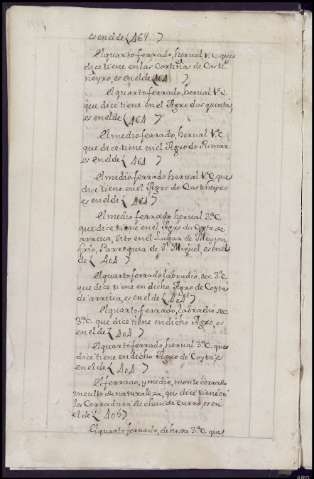 es en el de ( 464 )
El quarto ferrado, hernal 1ª C. que
dice tiene en las Cortiñas de Cast.
es en el de 464 )
El quarto ferrado, hernal 1ª C.
que dice tiene en el Agro das quintas
es en el de ( 464 )
El medio ferrado, hernal 1ª C.
que dice tiene en el Agro de
es en el de ( 464 )
El medio ferrado hernal 1ª C. que
dice tiene en el Agro de
es en el de ( 464 )
El medio ferrado hernal 3ª C.
que dice tiene en el Agro de Costa de
arretua, sito en el Lugar de
Parroquia de Sⁿ Miguel es en el
de ( 464 )
El quarto ferrado labradio, sec. 3ª C.
que dice tiene en dicho Agro de Costa
de arretua, es en el de ( 464 )
El quarto ferrado, labradio sec.
3ª C. que dice tiene en dicho Agro, es
en el de ( 464 )
El quarto ferrado hernal 3ª C. que
dice tiene en dicho Agro de Costa es
en el de ( 464 )
El ferrado, y medio, monte cerrado
inculto de naturaleza, que dice tiene en
la Cerradura de chan de es en
el de ( 465 )
El quarto ferrado, de 3ª C. que